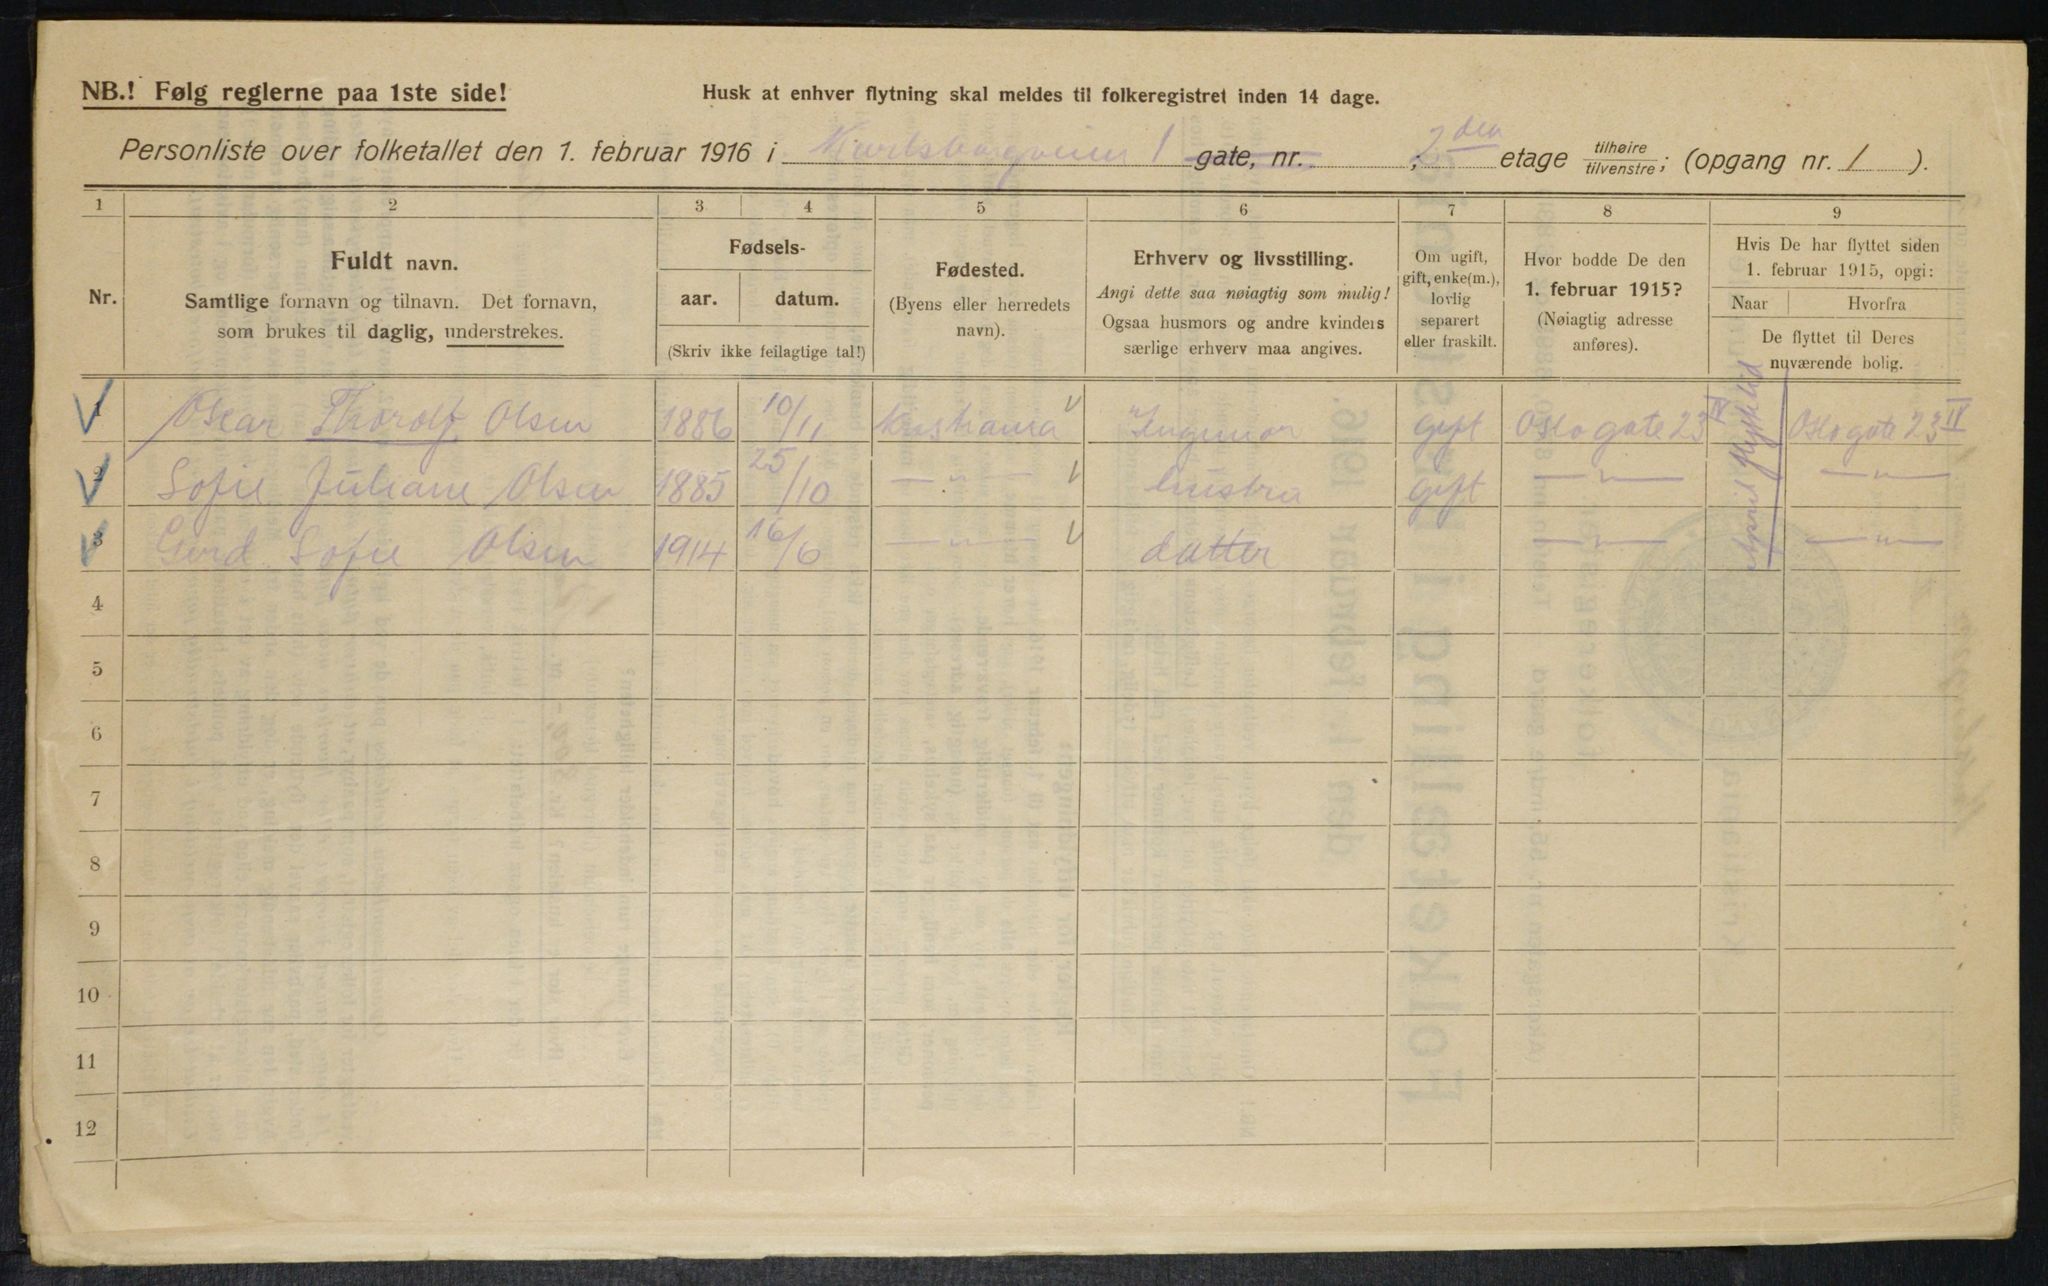 NB.! Følg reglerne paa 1ste side!
Husk at enhver flytning skal meldes til folkeregistret inden 14 dage.
Personliste over folketallet den 1. februar 1916 i 1 gate, nr. ; 2den etage tilhøire/tilvenstre; (opgang nr. 1).
1 2 3 4 5 6 7 8 9
Nr.
Fuldt navn.
Samtlige fornavn og tilnavn. Det fornavn,
som brukes til daglig, understrekes.
Fødsels-
aar. datum.
(Skriv ikke feilagtige tal!)
Fødested.
(Byens eller herredets
navn).
Erhverv og livsstilling.
Angi dette saa nøiagtig som mulig!
Ogsaa husmors og andre kvinders
særlige erhverv maa angives.
Om ugift,
gift, enke(m.),
lovlig
separert
eller fraskilt.
Hvor bodde De den
1. februar 1915?
(Nøiagtig adresse
anføres).
Hvis De har flyttet siden
1. februar 1915, opgi:
Naar Hvorfra
De flyttet til Deres
nuværende bolig.
1 Oscar Thorolf Olsen 1886 10/11 Kristiania Ingeniør gift Oslo gate 23 IV Oslo gate 23 IV
2 Sofie Juliane Olsen 1885 25/10 — " — hustru gift — " — — " —
3 Gerd Sofie Olsen 1914 16/6 — " — datter — " — — " —
April
4
5
6
7
8
9
10
11
12